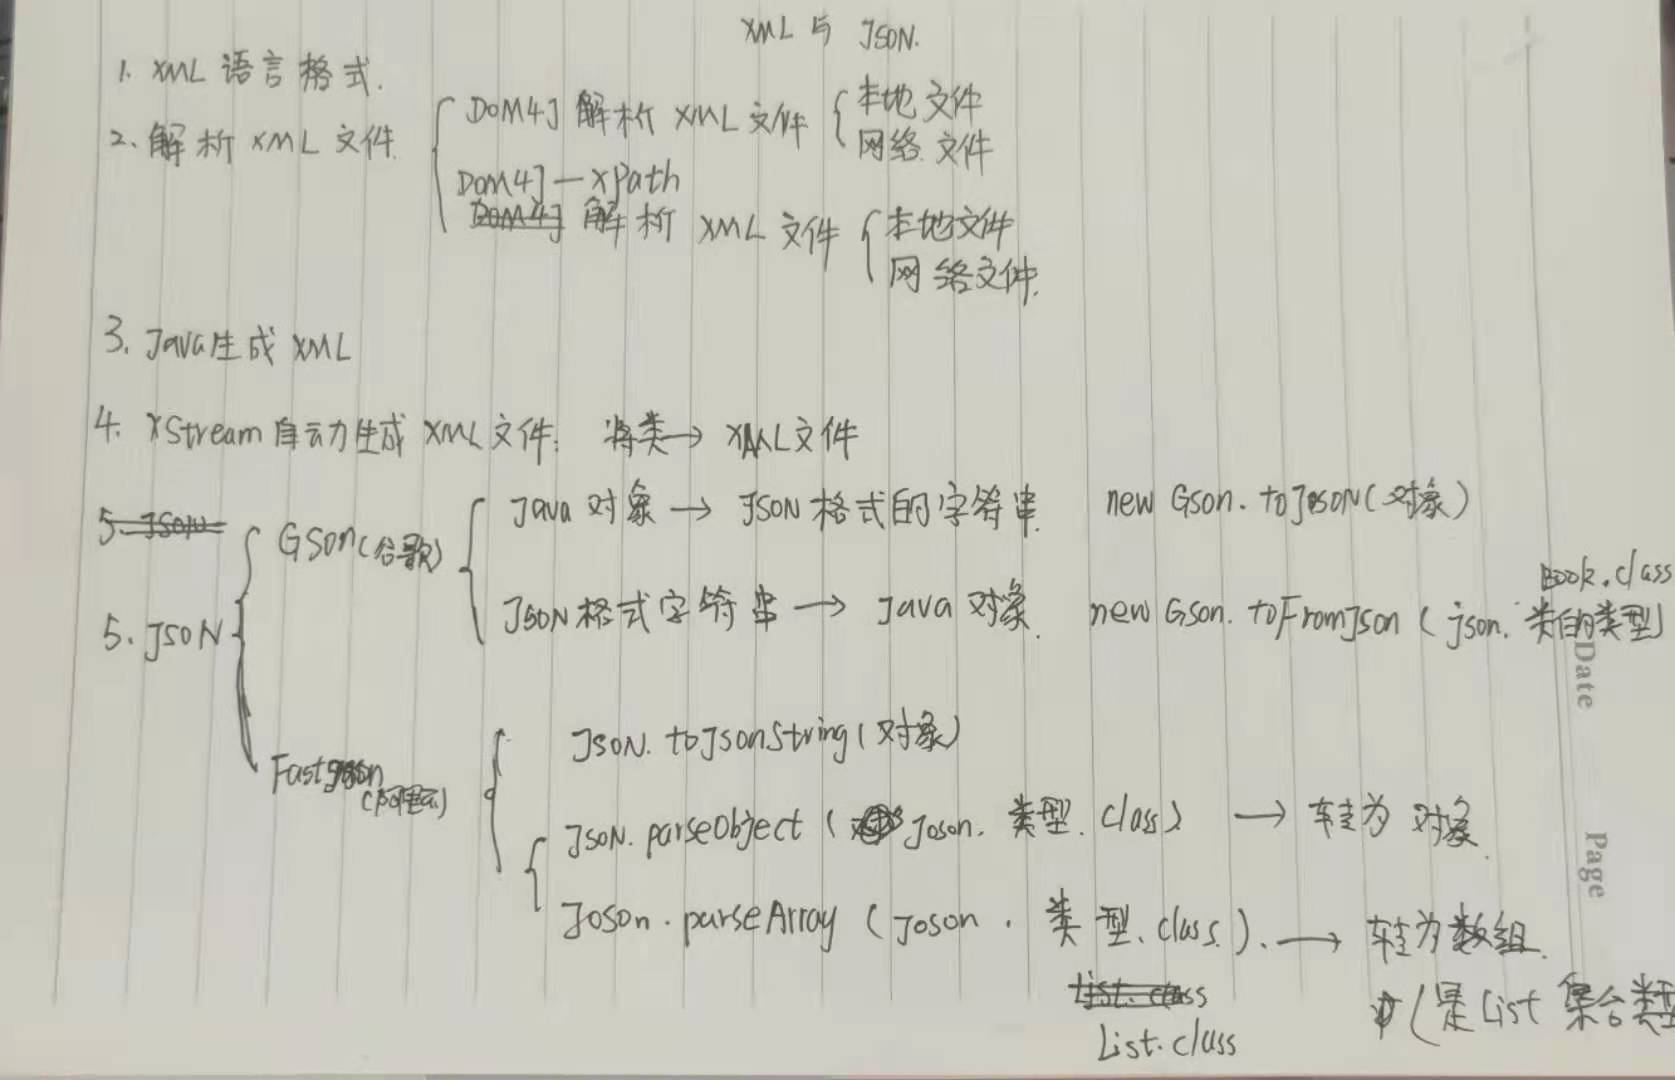 XML 与 JSON.
1. XML 语言格式.
2. 解析 XML 文件.
DOM4J 解析 XML 文件
本地文件
网络文件
DOM4J—XPath
DOM4J 解析 XML 文件
本地文件
网络文件.
3. Java生成 XML
4. XStream 自动生成 XML 文件. 将类→ XML文件
5 JSON
5. JSON
GSon(谷歌)
Java 对象 → JSON 格式的字符串. new Gson. toJson(对象)
JSON 格式字符串 → Java 对象. new Gson. toFromJson ( json. 类的类型)
Book.class
Fastjson
(阿里云)
JSON. toJsonString(对象)
JSON. parseObject ( Joson. 类型. class) → 转为 对象.
Joson. parseArray ( Joson . 类型. class. ). → 转为数组.
List. class
List. class
(是 List 集合类型
Date
Page